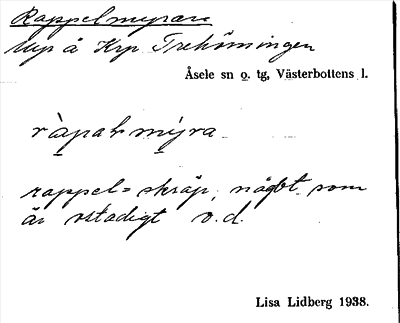 Rappelmyrarne
Myr å Krp Trehörningen
Åsele sn o. tg, Västerbottens l.
ràpaḷmy̆ra
rappel = skräp, något som
är ostadigt o.d.
Lisa Lidberg 1938.